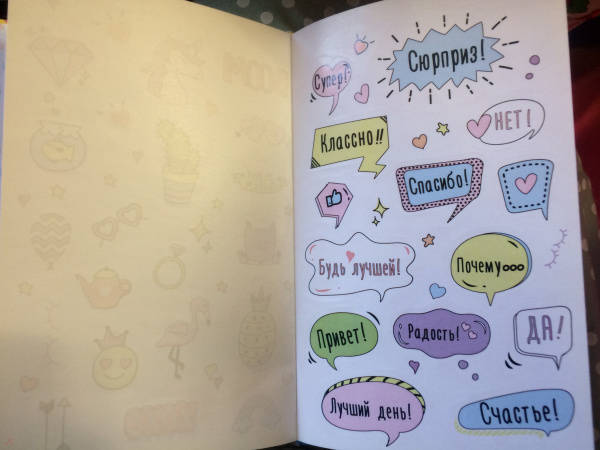 Сюрприз!
Супер!
НЕТ!
Классно!!
Спасибо!
Будь лучшей!
Почему ооо
Привет!
Радость!
ДА!
Лучший день!
Счастье!